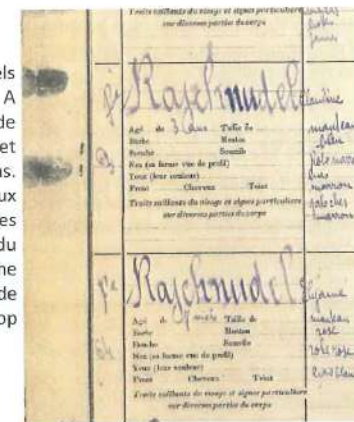 els
A
de
et
ns.
ux
es
du
de
op
Traits saillants du visage et signes particuliers
sur diverses parties du corps
Rajchnudel Claudine
Agé de 3 ans Taille de
Barbe Menton
Bouche Sourcils
Nez (sa forme vue de profil)
Yeux (leur couleur)
Front Cheveux Teint
Traits saillants du visage et signes particuliers
sur diverses parties du corps
manteau
bleu
marron
galoches
marrons
Rajchnudel
Agé de Taille de
Barbe Menton
Bouche Sourcils
Nez (sa forme vue de profil)
Yeux (leur couleur)
Front Cheveux Teint
Traits saillants du visage et signes particuliers
sur diverses parties du corps
manteau
rose
robe rose